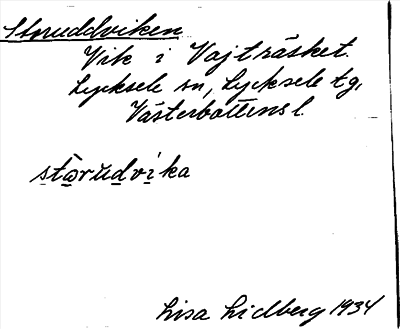 Storuddviken
Vik i Vajträsket.
Lycksele sn, Lycksele tg,
Västerbottens l.
stɷrŭdvika
Lisa Lidberg 1934